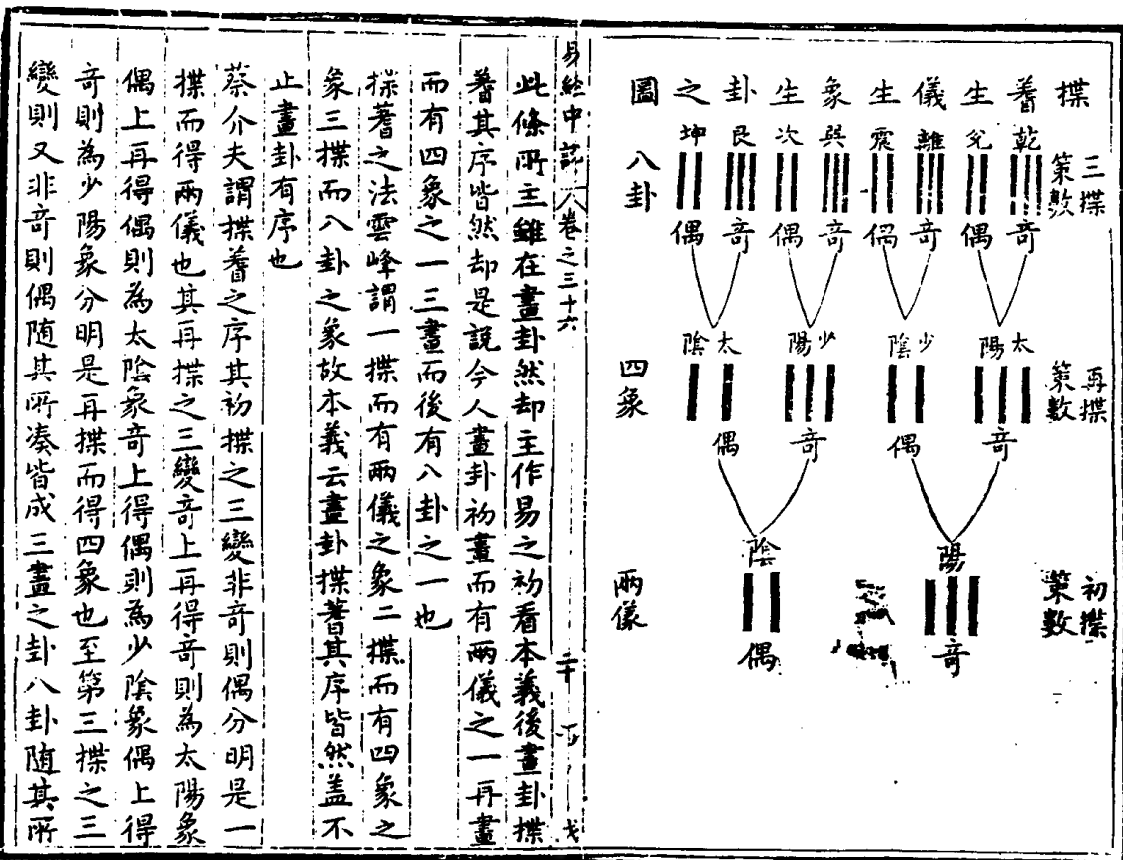 揲蓍生儀生象生卦之圖
三揲
策數
乾 兌 離 震 巽 坎 艮 坤
奇 偶 奇 偶 奇 偶 奇 偶
八卦
再揲
策數
太陽 少陰 少陽 太陰
奇 偶 奇 偶
四象
初揲
策數
陽 陰
奇 偶
兩儀
卷之三十六
此條所主雖在畫卦然却主作易之初看本義後畫卦揲
蓍其序皆然却是說今人畫卦初畫而有兩儀之一再畫
而有四象之一三畫而後有八卦之一也
揲蓍之法雲峰謂一揲而有兩儀之象二揲而有四象之
象三揲而八卦之象故本義云畫卦揲蓍其序皆然盖不
止畫卦有序也
蔡介夫謂揲蓍之序其初揲之三變非奇則偶分明是一
揲而得兩儀也其再揲之三變奇上再得奇則為太陽象
偶上再得偶則為太陰象奇上得偶則為少陰象偶上得
奇則為少陽象分明是再揲而得四象也至第三揲之三
變則又非奇則偶隨其所湊皆成三畫之卦八卦隨其所